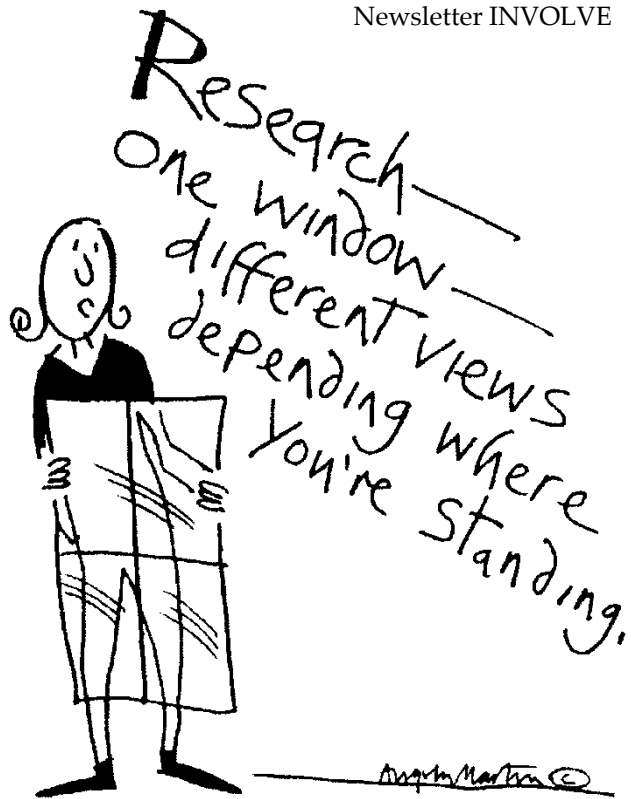 Newsletter INVOLVE
Research—
One window—
different views
depending where
you're standing.
Angela Martin ©